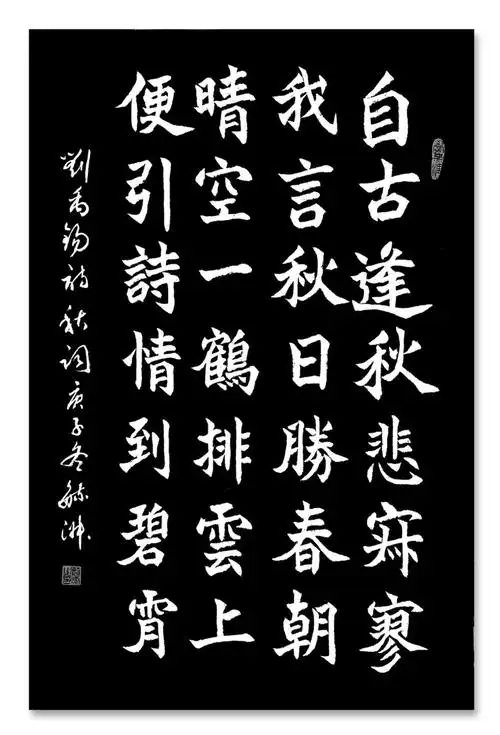 自古逢秋悲寂寥
我言秋日勝春朝
晴空一鶴排雲上
便引詩情到碧宵
劉禹錫詩秋詞庚子冬毓